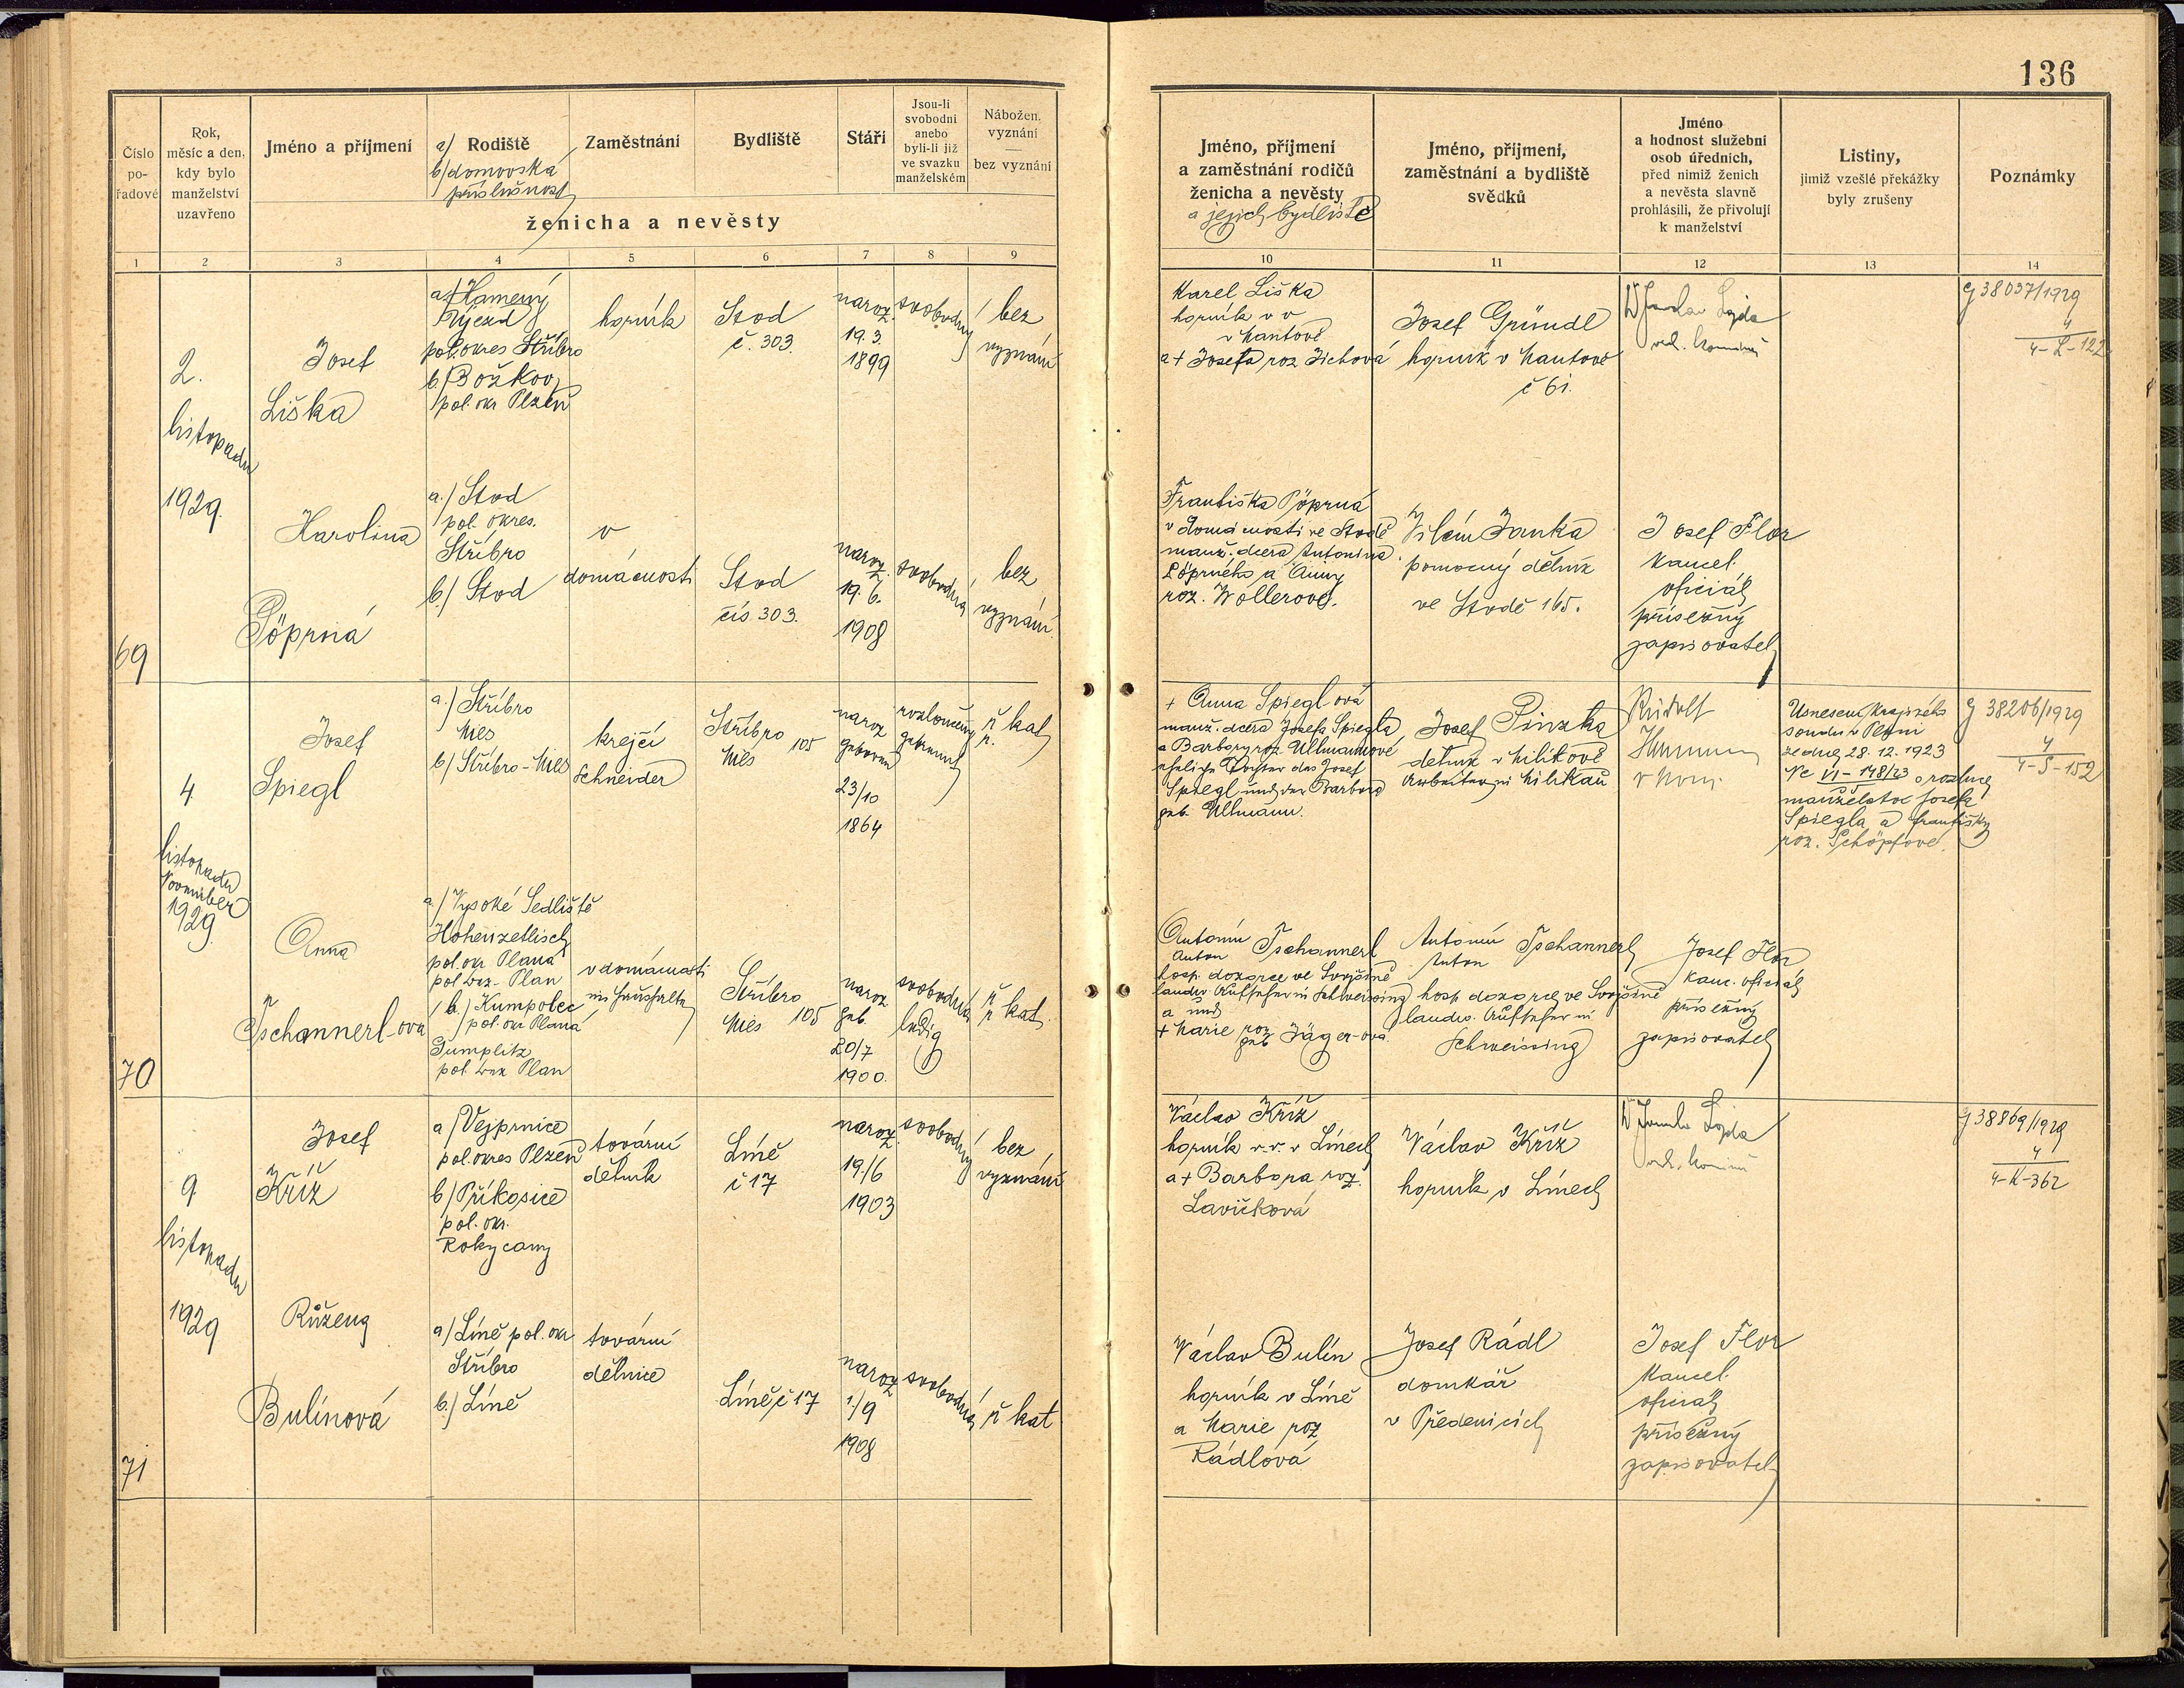 136
Číslo
po-
řadové
Rok,
měsíc a den,
kdy bylo
manželství
uzavřeno
Jméno a příjmení
a) Rodiště
b) domovská
příslušnost
Zaměstnání
Bydliště
Stáří
Jsou-li
svobodni
anebo
byli-li již
ve svazku
manželském
Nábožen.
vyznání
—
bez vyznání
ženicha a nevěsty
Jméno, příjmení
a zaměstnání rodičů
ženicha a nevěsty
a jejich bydliště
Jméno, příjmení,
zaměstnání a bydliště
svědků
Jméno
a hodnost služební
osob úředních,
před nimiž ženich
a nevěsta slavně
prohlásili, že přivolují
k manželství
Listiny,
jimiž vzešlé překážky
byly zrušeny
Poznámky
1 2 3 4 5 6 7 8 9 10 11 12 13 14
69
2.
listopadu
1929.
Josef
Liška
a) Kamený
Újezd
pol. okres Stříbro
b) Božkov
pol. okr. Plzeň
horník
Stod
č. 303.
naroz.
19.3.
1899
svobodný
bez
vyznání
Karel Liška
horník v v
v Mantově
a + Josefa roz Zichová
Josef Gründl
horník v Mantově
č 61.
Jaroslav Lojda
G 38037/1929
4
4-L-122
Karolina
Pöprná
a.) Stod
pol. okres.
Stříbro
b.) Stod
v
domácnosti
Stod
čís. 303.
naroz.
19.6.
1908
svobodná
bez
vyznání
Františka Pöprná
v domácnosti ve Stodě
manž. dcera Antonína
Pöprného a Anny
roz. Wollerové.
Vilém Janka
pomocný dělník
ve Stodě 165.
Josef Flor
kancel.
oficiál
přísežný
zapisovatel
70
4
listopadu
November
1929
Josef
Spiegl
a.) Stříbro
Mies
b) Stříbro-Mies
krejčí
Schneider
Stříbro
Mies 105
naroz
geboren
23/10
1864
rozloučený
getrennt
ř kat
r.
+ Anna Spieglová
manž. dcera Josefa Spiegla
a Barbory roz. Ullmannové
eheliche Tochter des Josef
Spiegl und der Barbora
geb. Ullmann.
Josef Pinzka
dělník v Milikově
Arbeiter in Milikau
Rudolf
Usnesení Krajského
soudu v Plzni
ze dne 28.12.1923
Nc VI-148/23 o rozluce
manželství Josefa
Spiegla a Františky
roz. Schöpfové.
G 38206/1929
4
4-S-152
Anna
Tschannerl-ová
a.) Vysoké Sedliště
Hohenzetlisch
pol. okr. Planá
pol. bez- Plan
b.) Kumpolec
pol. okr. Planá
Gumplitz
pol. bez Plan
v domácnosti
im Haushalte
Stříbro
Mies 105
naroz
geb.
20/7
1900.
svobodná
ledig
ř kat.
r
Antonín Tschannerl
Anton
hosp. dozorce ve Svojšíně
landw. Aufseher in Schweissing
a und
+ Marie roz Jäger-ová
geb
Antonín Tschannerl
Anton
hosp. dozorce ve Svojšíně
landw. Aufseher in
Schweissing
Josef Flor
kanc. oficiál
přísežný
zapisovatel
71
9
listopadu
1929
Josef
Kříž
a) Vejprnice
pol. okres Plzeň
b) Příkosice
pol. okr.
Rokycany
tovární
dělník
Líně
č 17
naroz.
19./6
1903
svobodný
bez
vyznání
Václav Kříž
horník v.v. v Líních
a + Barbora roz.
Lavičková
Václav Kříž
horník v Líních
Lojda
G 38869/1929
4
4-K-362
Růžena
Bulínová
a) Líně pol. okr
Stříbro
b.) Líně
tovární
dělnice
Líně č 17
naroz
1./9
1908
svobodná
ř kat
Václav Bulín
horník v Líně
a Marie roz
Rádlová
Josef Rádl
domkář
v Předenicích
Josef Flor
kancel.
oficiál
přísežný
zapisovatel